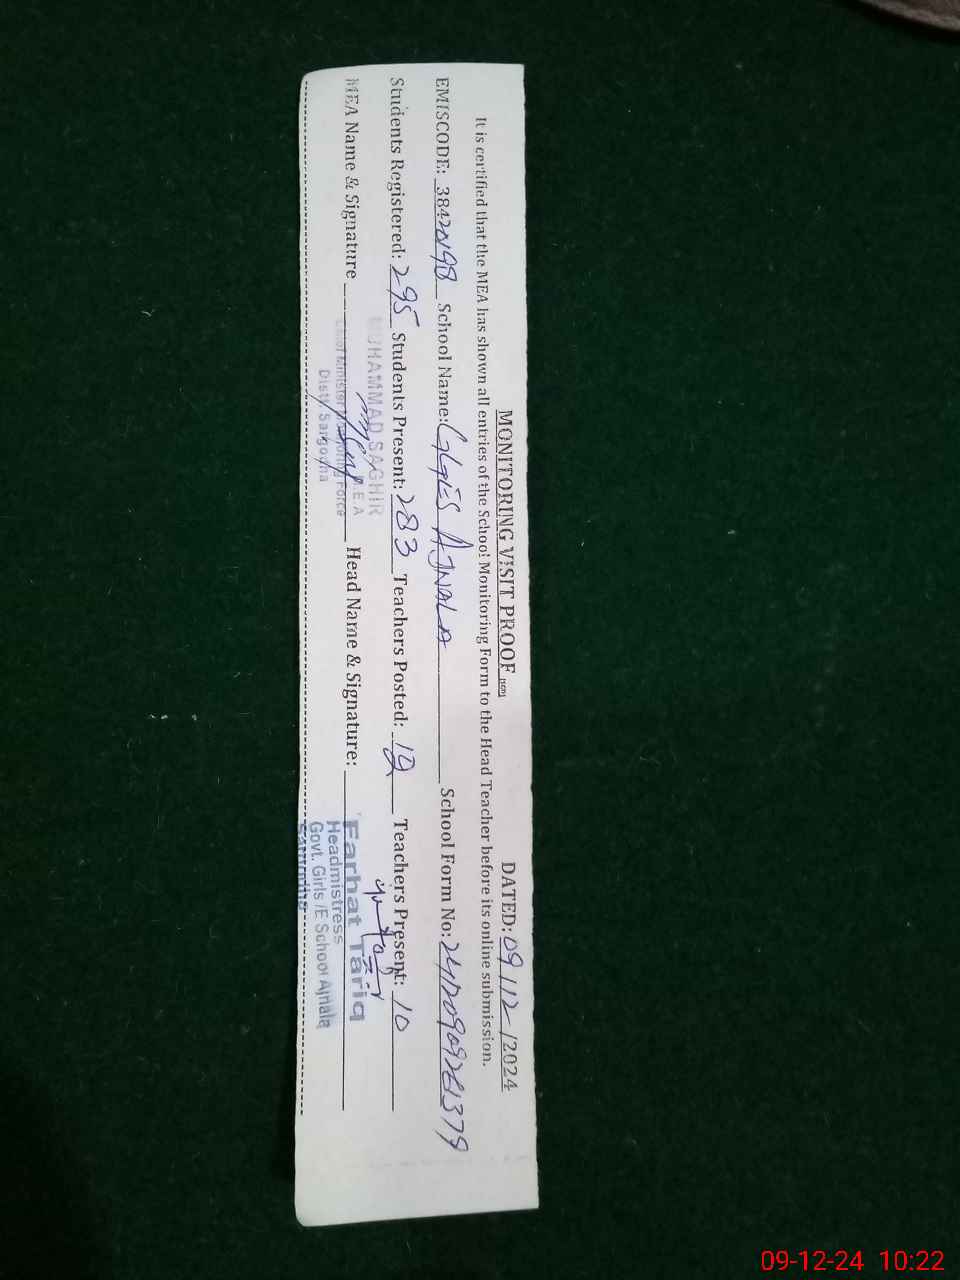 MONITORING VISIT PROOF
DATED: 09/12/2024
It is certified that the MEA has shown all entries of the School Monitoring Form to the Head Teacher before its online submission.
EMISCODE: 38420198 School Name: GGES AJNALA School Form No:
Students Registered: 295 Students Present: 283 Teachers Posted: 12 Teachers Present: 10
MEA Name & Signature Head Name & Signature:
MUHAMMAD SAGHIR
M.E.A
Chief Minister Monitoring Force
Distt. Sargodha
Farhat Tariq
Headmistress
Govt. Girls /E School Ajnala
Sargodha
09-12-24 10:22